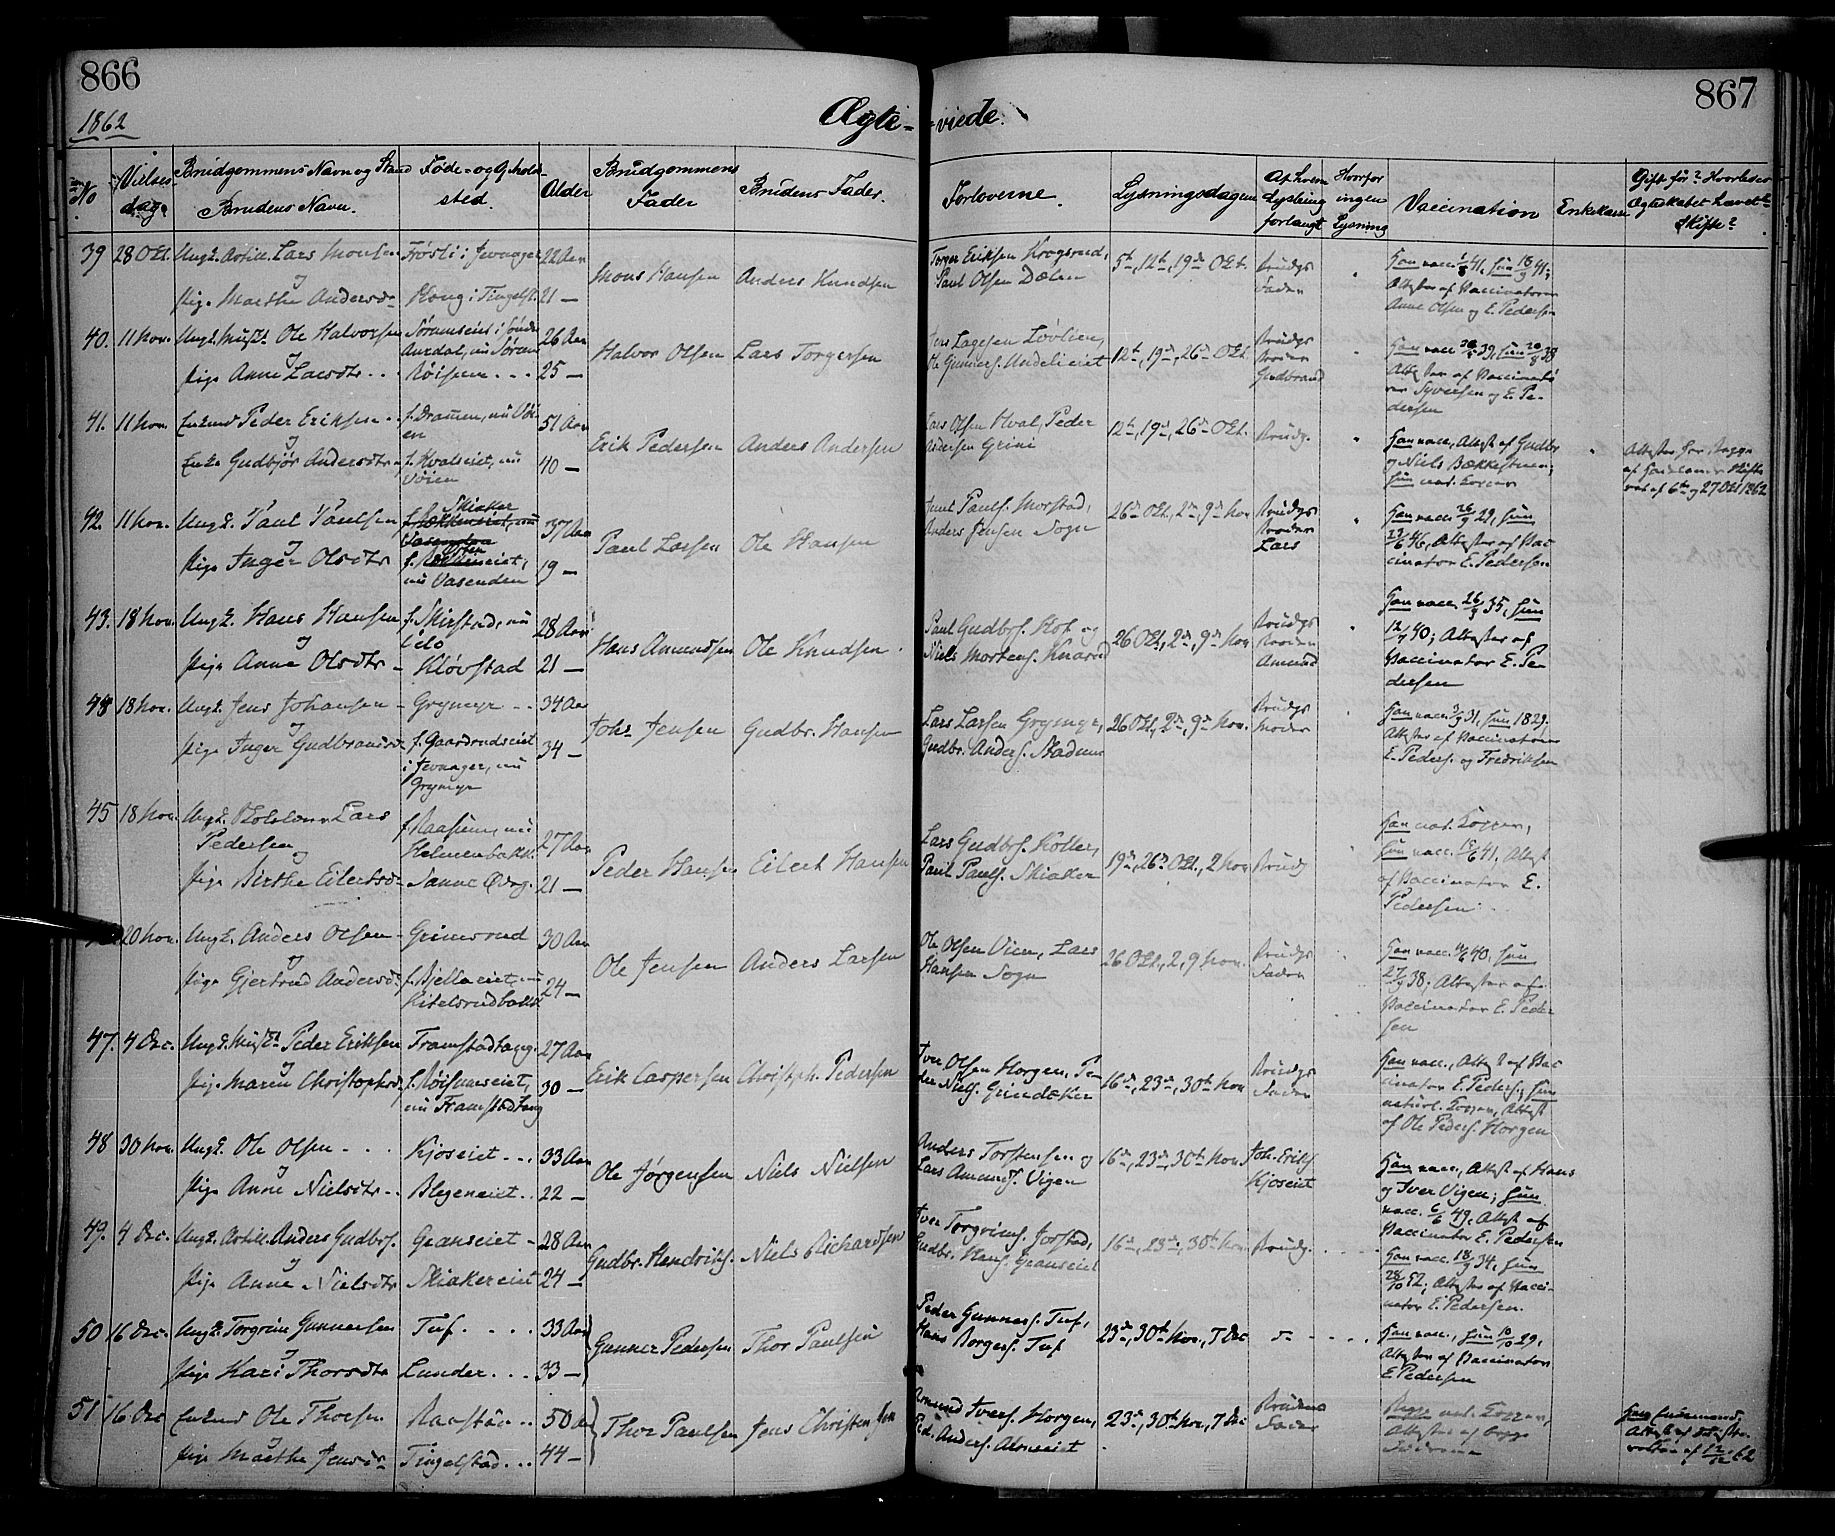 866
867
1862
Ægte-
-viede.
No
Vielses-
dag.
Brudgommens Navn og Stand
Brudens Navn.
Føde- og Ophold-
sted.
Alder
Brudgommens
Fader
Brudens Fader.
Forloverne.
Lysningsdagene
Af hvem
Lysning
forlangt
Hvorfor
ingen
Lysning
Vaccination
Enkekasse
Gift før? Hvorledes
Ægteskabet hævet?
Skifte?
39 28 Okt. Ungk. Artill. Lars Monsen
og
Pige Marthe Andersd.
Frøsli i Jevnager
Kong i Tingelst.
22 Aar
21 —
Mons Hansen
Anders Knudsen
Torger Eriksen Krogsrud,
Paul Olsen Dælen
5te, 12te, 19de Okt.
Brudgs
Fader
Attester af Vaccinatoren
Anne Olsen og E. Pedersen
40. 11 Nov. Ungk. Musk. Ole Halvorsen
og
Pige Anne Larsdtr
26 Aar
25 —
Halvor Olsen
Lars Torgersen
Jens Lagesen Løvlien,
Ole Gunners.
12te, 19de, 26de Okt.
Brudgs
Broder
Gudbrand
Attester af Vaccinatø
rer Syversen og E. Pe-
dersen
41. 11 Nov. Enkemd Peder Eriksen
og
Enke Gudbjør Andersdtr
f. Dramen, nu Vøi-
en
f. Hvalseiet, nu
Vøien
51 Aar
40 —
Erik Pedersen
Anders Andersen
Lars Olsen Hval, Peder
Andersen Grini
12te, 19de, 26de Okt.
Brudg.
Han vacc., Attest af Gudbr.
og Niels Bækkestuen;
Hun nat. Kopper
af 6te og 27 Okt 1862
42. 11 Nov. Ungk. Paul Paulsen
og
Pige Inger Olsdtr
Skiaker
nu Vasenden
37 Aar
19 —
Paul Larsen
Ole Hansen
Juul Pauls. Morstad,
Anders Jensen Sogn
26de Okt., 2den, 9de Nov
Brudgs
Broder
Lars
Han vacc. 26/9 29, Hun
23/6 46, Attester af Vac-
cinator E. Pedersen
43. 18 Nov. Ungk. Hans Hansen
og
Pige Anne Olsdtr
f. Skirstad, nu
Helo
Kløvstad
28 Aar
21 —
Hans Amundsen
Ole Knudsen
Paul Gudbrs. Hof og
Niels Mortens. Knarud
26 Okt., 2den, 9de Nov
Brudgs
Broder
Amund
Han vacc. 26/9 35, Hun
12/7 40; Attester af
Vaccinator E. Pe-
dersen
44 18 Nov. Ungk. Jens Johansen
og
Pige Inger Gudbrandsd.
Grymyr
f. Gaardsrudseiet
i Jevnager, nu
Grymyr
34 Aar
34 —
Johs Jensen
Gudbr. Hansen
Lars Larsen Grymyr,
Gudbr. Anders. Stadum
26 Okt., 2den, 9de Nov.
Brudgs
Moder
Han vacc. 3/9 31, Hun 1829.
Attester af Vaccinatorer
E. Peders. og Fredriksen
45 18 Nov. Ungk. Lars
Pedersen og
Pige Birthe Eilertsd.
f. Raasum, nu
Helmenbakk.
Sanne Øvrg.
27 Aar
21 —
Peder Hansen
Eilert Hansen
Lars Gudbrs. Koller,
Paul Pauls. Skiaker
19de, 26de Okt., 2 Nov
Brudg
Han nat. Kopper,
Hun vacc. 41, Attest
af Vaccinator E.
Pedersen
20 Nov. Ungk. Anders Olsen
og
Pige Gjertrud Andersd.
Grimsrud
f. Bjellaeiet, nu
Kittelsrudbakk
30 Aar
24 —
Ole Jensen
Anders Larsen
Ole Olsen Vien, Lars
Hansen Sogn
26 Okt., 2, 9 Nov.
Brudgs
Fader
Han vacc. 40, Hun
27/9 38; Attester af
Vaccinator E. Peder-
sen
47. 4 Dec. Ungk. Musk. Peder Eriksen
og
Pige Maren Christophsd.
Framstadtang.
f. Røisumseiet,
nu Framstadtang
27 Aar
30 —
Erik Caspersen
Christoph. Pedersen
Iver Olsen Horgen, Pe-
der Niels. Grindaker
16de, 23de, 30te Nov
Brudgs
Fader
Han vacc., Attest af Vac-
cinator E. Peders.; Hun
naturl. Kopper, Attest
af Ole Peders. Horgen
48 30 Nov. Ungk. Ole Olsen
og
Pige Anne Nielsdtr
Kjoseiet
Blegeneiet
33 Aar
22 —
Ole Jørgensen
Niels Nielsen
Anders Torstensen og
Lars Amunds. Vigen
16de, 23de, 30te Nov
Joh. Eriks.
Kjoseiet
Han vacc., Attest af Hans
og Iver Vigen; Hun
vacc. 6/6 49, Attest af
Vaccinator E. Pedersen
49. 4 Dec. Ungk. Artill. Anders Gudbrs.
og
Pige Anne Nielsdtr
Granseiet
Skiakereiet
28 Aar
24 —
Gudbr. Hendriks.
Niels Richardsen
Iver Torgrims. Jorstad,
Gudbr. Hans. Granseiet
16de, 23de, 30te Nov.
Brudg.
Han vacc. 18/9 34, Hun
28/10 52; Attester af Vacci-
nator E. Pedersen.
50 16 Dec. Ungk. Torgrim Gunnersen
og
Pige Kari Thorsdtr
Tuf
Lunder
33 Aar
33 —
Gunner Pedersen
Thor Paulsen
Peder Gunners. Tuf,
Hans Borgers. Tuf
23de, 30te Nov., 7 Dec
Han vacc., Hun 10/10 29,
Attester af Vaccinator
E. Pedersen
51 16 Dec Enkemd Ole Thorsen
og
Pige Marthe Jensd.
Raastøen
Tingelstad
50 Aar
44 —
Thor Paulsen
Jens Christensen
Amund Ivers. Horgen,
Ped. Anders. Almseiet
23de, 30te Nov., 7 Dec
Brudens
Fader
Begge nat. Kopper,
Attester af begge
Fædrene
Han Enkemand,
Attest af Skifte-
retten af 12/12 62